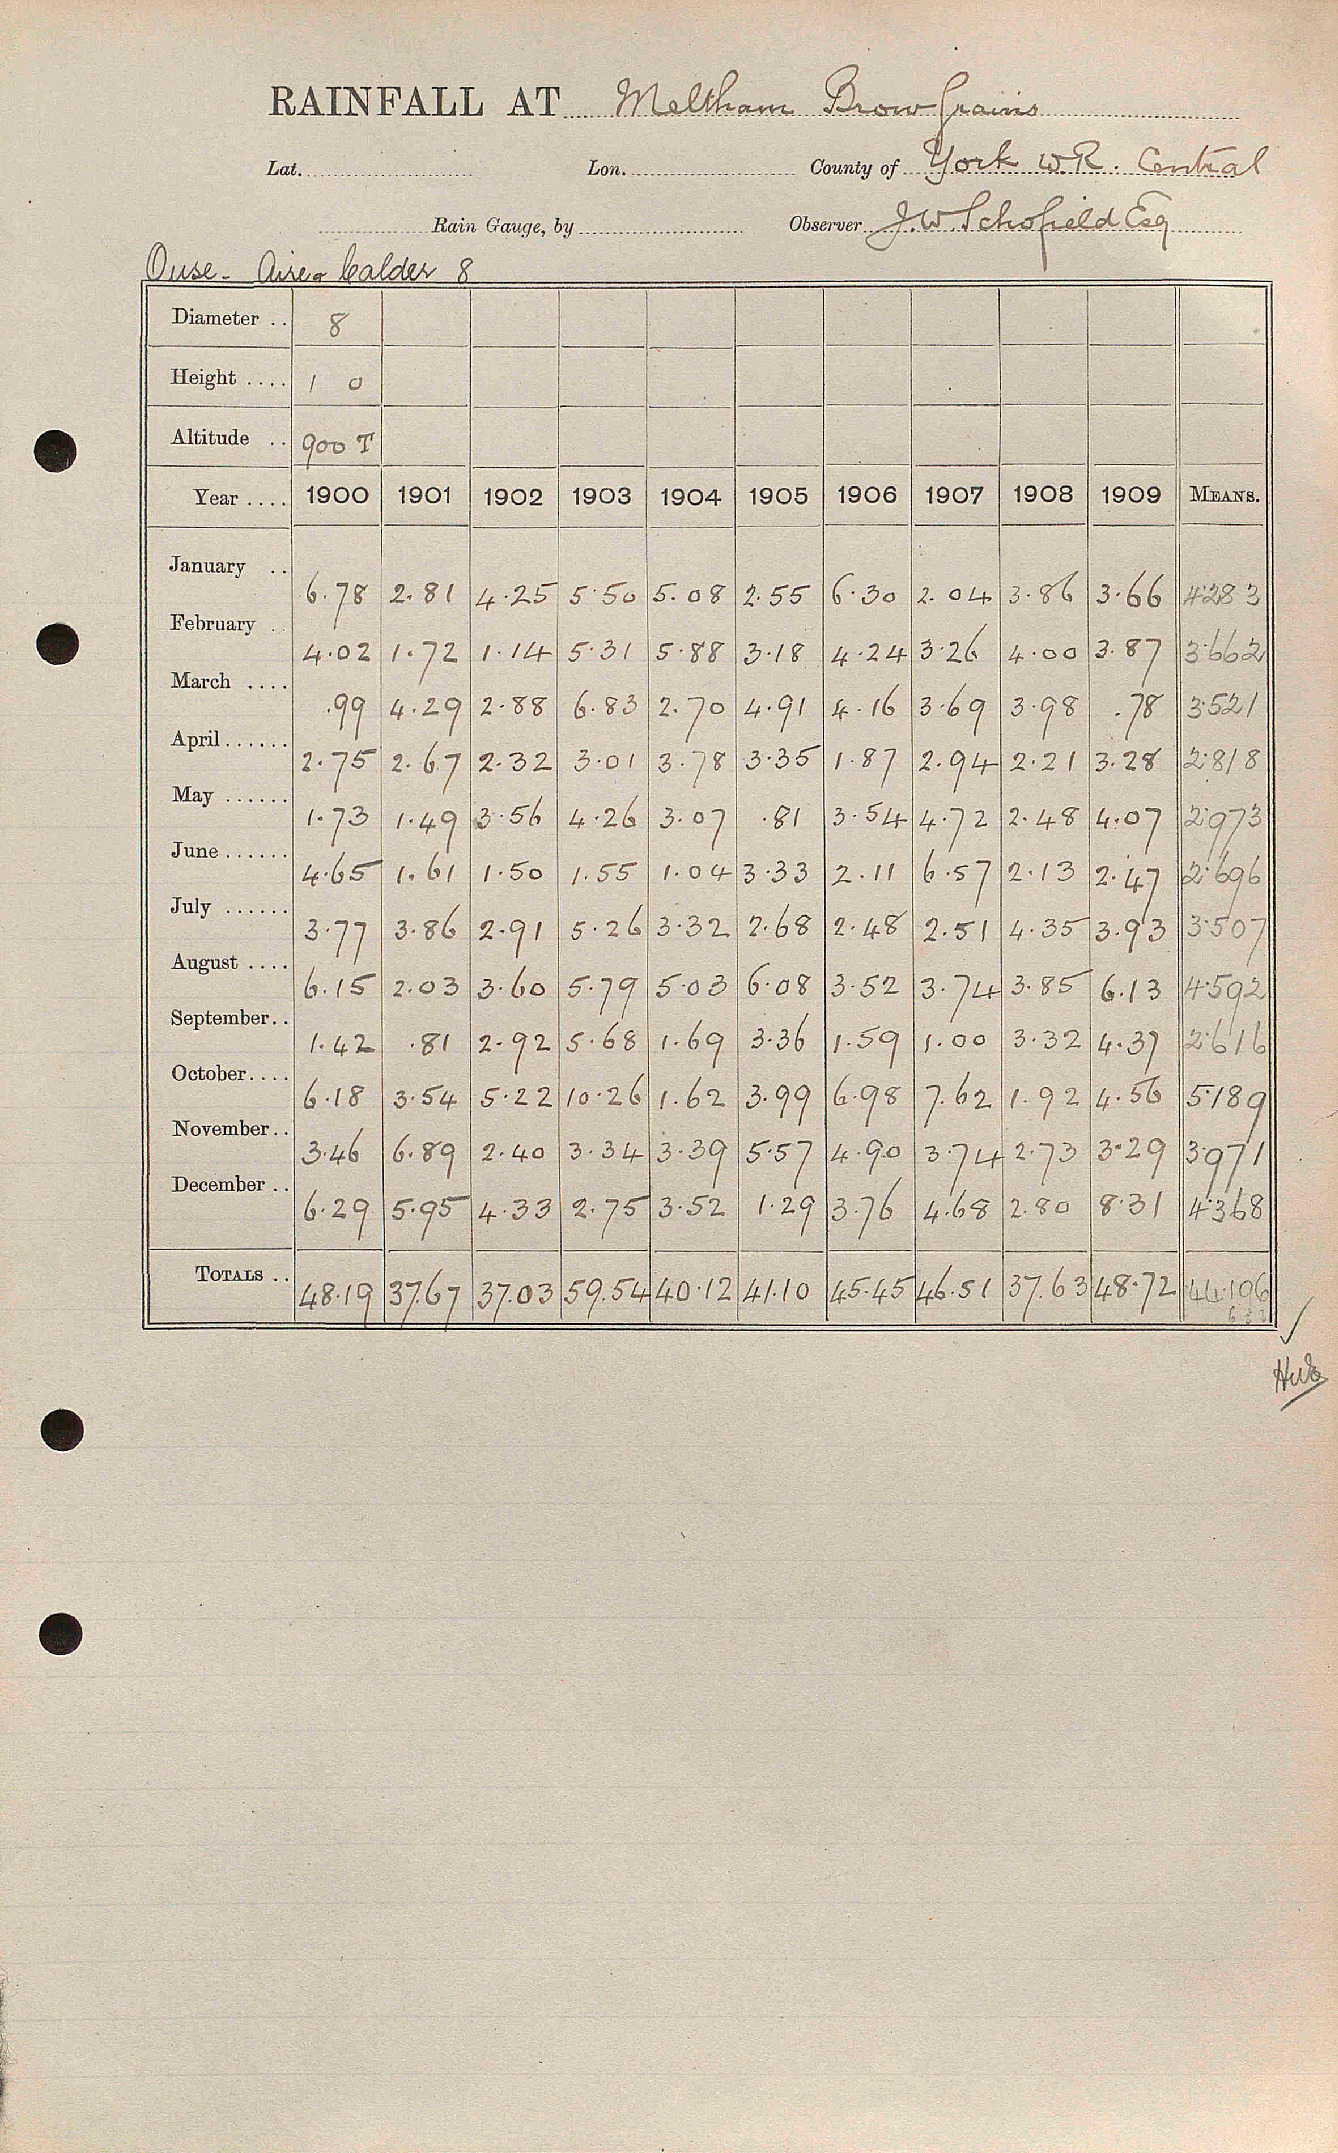 RAINFALL AT Meltham Brow Grains
Lat. Lon. County of York W.R. Central
Rain Gauge, by Observer J.W. Schofield Esq
Ouse - Aire & Calder 8
Diameter .. 8
Height .... 1 0
Altitude .. 900 T
Year .... 1900 1901 1902 1903 1904 1905 1906 1907 1908 1909 MEANS.
January .. 6.78 2.81 4.25 5.50 5.08 2.55 6.30 2.04 3.86 3.66 4.283
February .. 4.02 1.72 1.14 5.31 5.88 3.18 4.24 3.26 4.00 3.87 3.662
March .... .99 4.29 2.88 6.83 2.70 4.91 4.16 3.69 3.98 .78 3.521
April ...... 2.75 2.67 2.32 3.01 3.78 3.35 1.87 2.94 2.21 3.28 2.818
May ...... 1.73 1.49 3.56 4.26 3.07 .81 3.54 4.72 2.48 4.07 2.973
June ...... 4.65 1.61 1.50 1.55 1.04 3.33 2.11 6.57 2.13 2.47 2.696
July ...... 3.77 3.86 2.91 5.26 3.32 2.68 2.48 2.51 4.35 3.93 3.507
August .... 6.15 2.03 3.60 5.79 5.03 6.08 3.52 3.74 3.85 6.13 4.592
September.. 1.42 .81 2.92 5.68 1.69 3.36 1.59 1.00 3.32 4.37 2.616
October.... 6.18 3.54 5.22 10.26 1.62 3.99 6.98 7.62 1.92 4.56 5.189
November.. 3.46 6.89 2.40 3.34 3.39 5.57 4.90 3.74 2.73 3.29 3.971
December .. 6.29 5.95 4.33 2.75 3.52 1.29 3.76 4.68 2.80 8.31 4.368
TOTALS .. 48.19 37.67 37.03 59.54 40.12 41.10 45.45 46.51 37.63 48.72 44.196